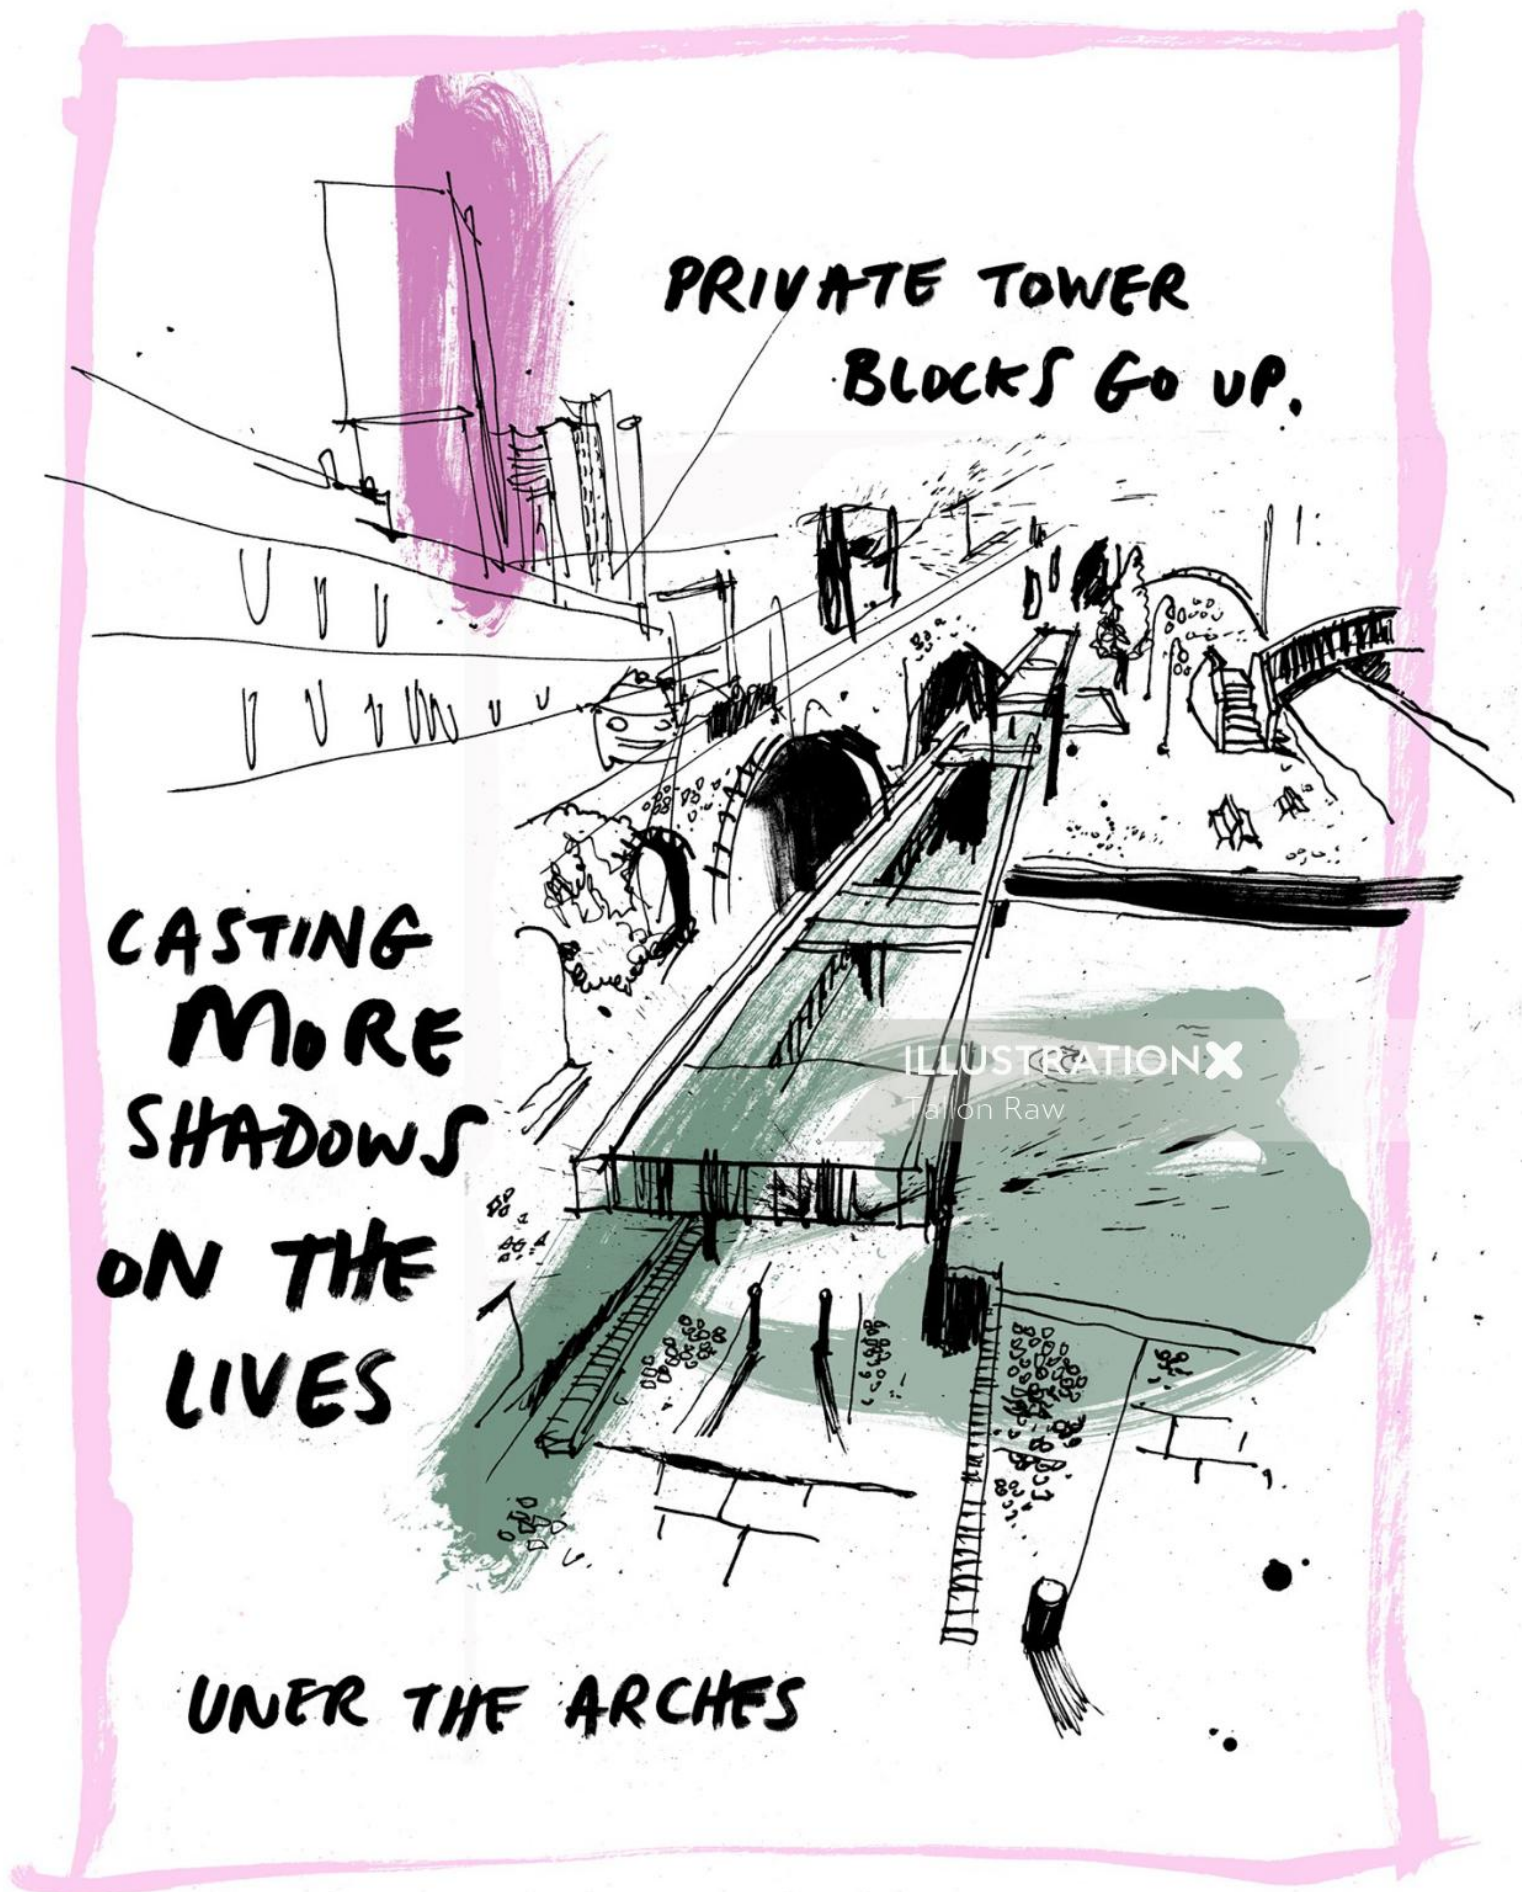 PRIVATE TOWER
BLOCKS GO UP.
CASTING
MORE
SHADOWS
ON THE
LIVES
ILLUSTRATIONX
Tallon Raw
UNER THE ARCHES